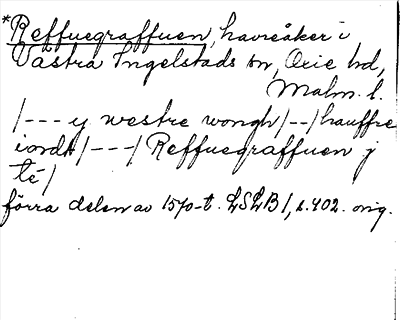 *Reffuegraffuen, havreåker i
Västra Ingelstads sn, Oxie hd,
Malm. l.
/--- y westre wongh/--/hauffre
iordt/---/ Reffuegraffuen j
té/
förra delen av 1570-t. LSLB1, s.402. orig.